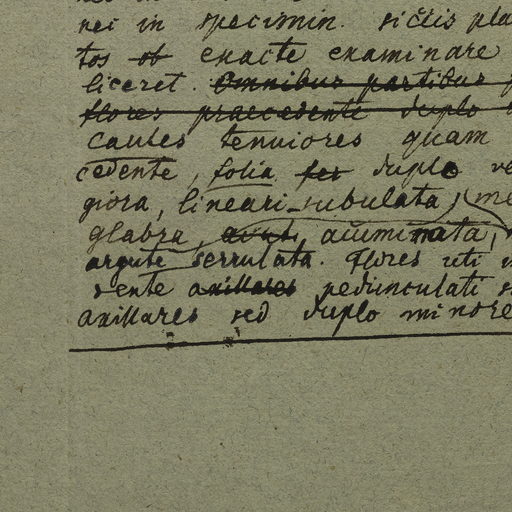 nei in specimin. siccis pla
tos ob exacte examinare
liceret. Omnibus partibus
flores praecedente duplo
caules tenuiores quam
cedente, folia fer duplo ve
giora, lineari-subulata, me
glabra, acut, acuminata,
argute serrulata. Flores uti
dente axillares pedunculati s
axillares sed duplo minore